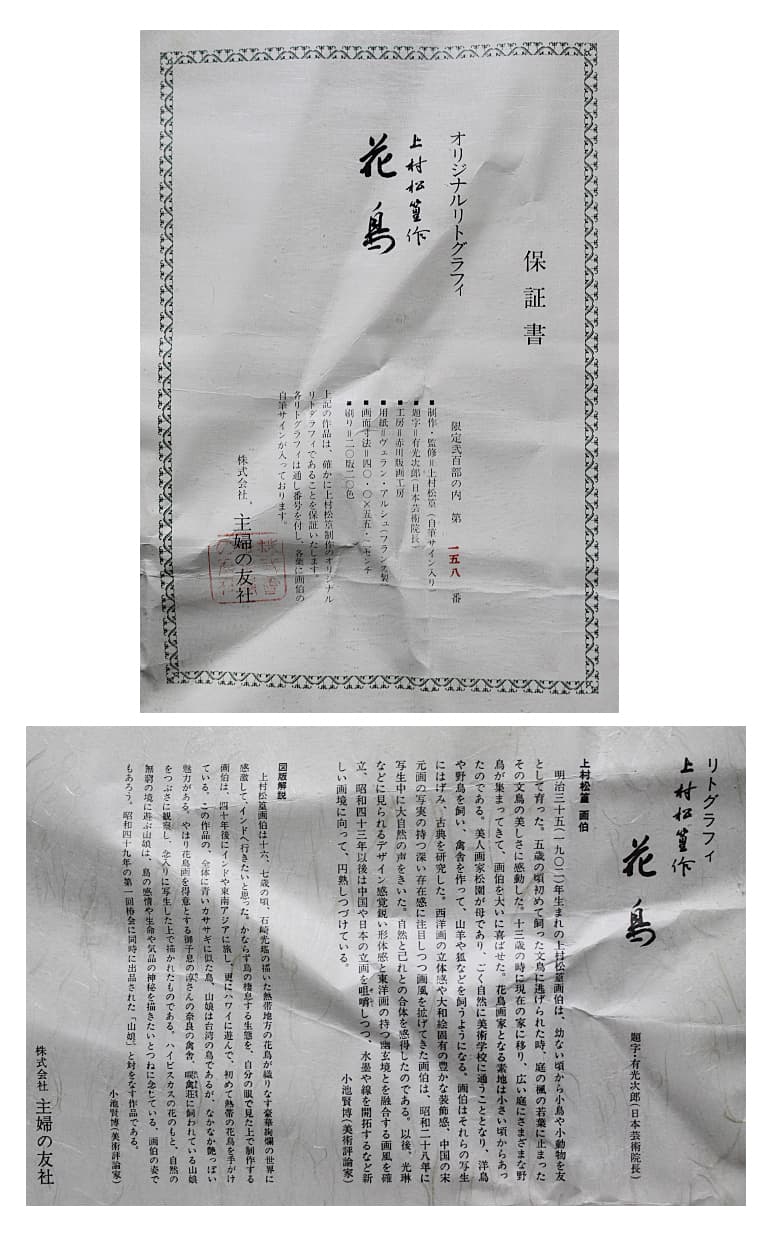 保証書
オリジナルリトグラフィ
上村松篁作
花鳥
限定弐百部の内 第 一五八 番
■制作・監修＝上村松篁(自筆サイン入り)
■題字＝有光次郎(日本芸術院長)
■工房＝赤川版画工房
■用紙＝ヴェラン・アルシュ(フランス製
■画面寸法＝四〇・〇×五五・ センチ
■刷り＝二〇版二〇色
上記の作品は、確かに上村松篁制作のオリジナル
リトグラフィであることを保証いたします。
各リトグラフィは通し番号を付し、各葉に画伯の
自筆サインが入っております。
株式会社 主婦の友社
リトグラフィ
上村松篁作
花鳥
題字・有光次郎(日本芸術院長)
上村松篁 画伯
明治三十五(一九〇二)年生まれの上村松篁画伯は、幼ない頃から小鳥や小動物を友
として育った。五歳の頃初めて飼った文鳥に逃げられた時、庭の楓の若葉に止まった
その文鳥の美しさに感動した。十三歳の時に現在の家に移り、広い庭にさまざまな野
鳥が集まってきて、画伯を大いに喜ばせた。花鳥画家となる素地は小さい頃からあっ
たのである。美人画家松園が母であり、ごく自然に美術学校に通うこととなり、洋鳥
や野鳥を飼い、禽舎を作って、山羊や狐などを飼うようになる。画伯はそれらの写生
にはげみ、古典を研究した。西洋画の立体感や大和絵固有の豊かな装飾感、中国の宋
元画の写実の持つ深い存在感に注目しつつ画風を拡げてきた画伯は、昭和二十八年に
写生中に大自然の声をきいた。自然と己れとの合体を感得したのである。以後、光琳
などに見られるデザイン感覚鋭い形体感と東洋画の持つ幽玄境とを融合する画風を確
立、昭和四十三年以後は中国や日本の立画を咀嚼しつつ、水墨や線を開拓するなど新
しい画境に向って、円熟しつづけている。
小池賢博(美術評論家)
図版解説
上村松篁画伯は十六、七歳の頃、石崎光瑤の描いた熱帯地方の花鳥が織りなす豪華絢爛の世界に
感激して、インドへ行きたいと思った。かならず鳥の棲息する生態を、自分の眼で見た上で制作する
画伯は、四十年後にインドや東南アジアに旅し、更にハワイに遊んで、初めて熱帯の花鳥を手がけ
ている。この作品の、全体に青いカササギに似た鳥、山娘は台湾の鳥であるが、なかなか艶っぽい
魅力がある。やはり花鳥画を得意とする御子息の淳さんの奈良の禽舎、唳禽荘に飼われている山娘
をつぶさに観察し、念入りに写生した上で描かれたものである。ハイビスカスの花のもと、自然の
無窮の境に遊ぶ山娘は、鳥の感情や生命や気品の神秘を描きたいとつねに念じている、画伯の姿で
もあろう。昭和四十九年の第一回椿会に同時に出品された「山娘」と対をなす作品である。
小池賢博(美術評論家)
株式会社 主婦の友社